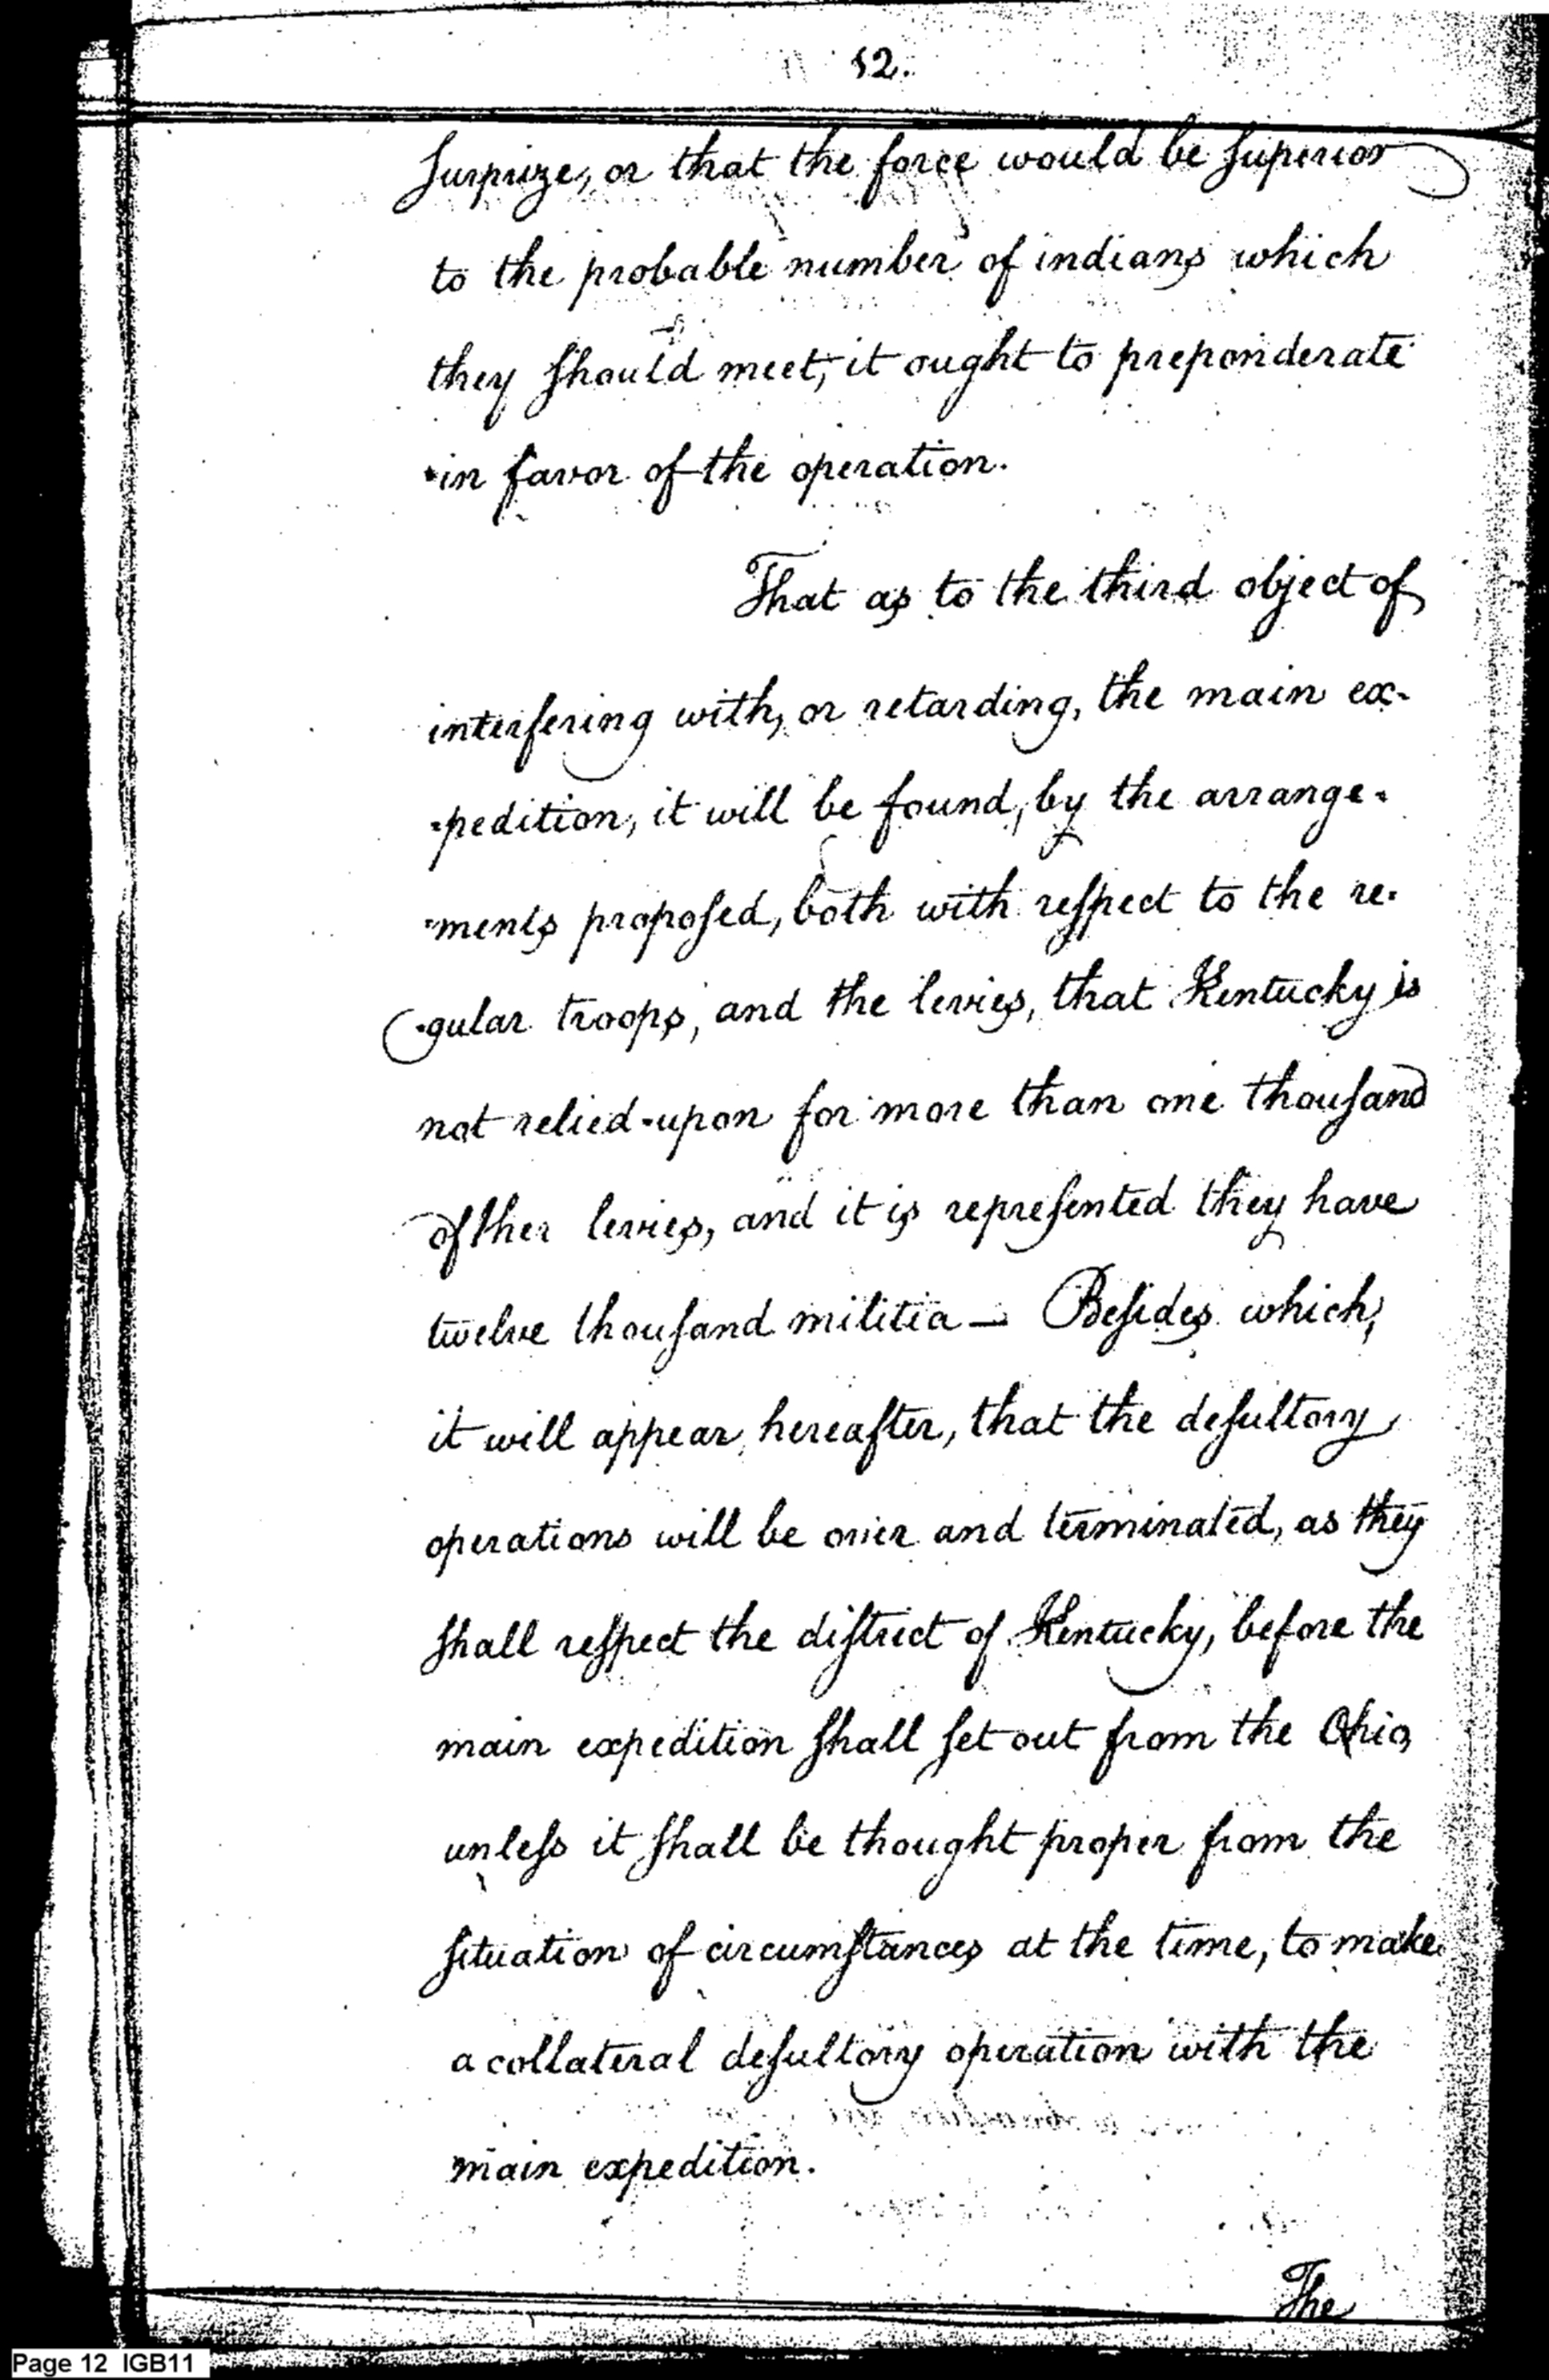 12.
Surprize, or that the force would be superior
to the probable number of indians which
they should meet, it ought to preponderate
in favor of the operation.
That as to the third object of
interfering with, or retarding, the main ex-
-pedition, it will be found, by the arrange-
-ments proposed, both with respect to the re-
-gular troops, and the levies, that Kentucky is
not relied-upon for more than one thousand
of her levies, and it is represented they have
twelve thousand militia — Besides which,
it will appear hereafter, that the desultory
operations will be over and terminated, as they
shall respect the district of Kentucky, before the
main expedition shall set out from the Ohio,
unless it shall be thought proper from the
situation of circumstances at the time, to make
a collateral desultory operation with the
main expedition.
The
Page 12 IGB11